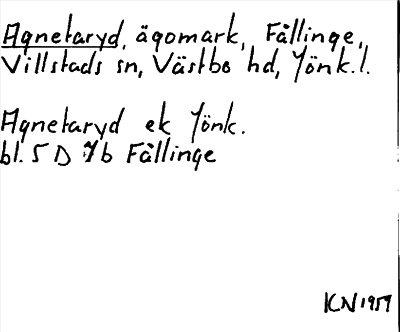 Agnetaryd, ägomark, Fållinge,
Villstads sn, Västbo hd, Jönk.l.
Agnetaryd ek Jönk.
bl. 5 D 7b Fållinge
KN 1959